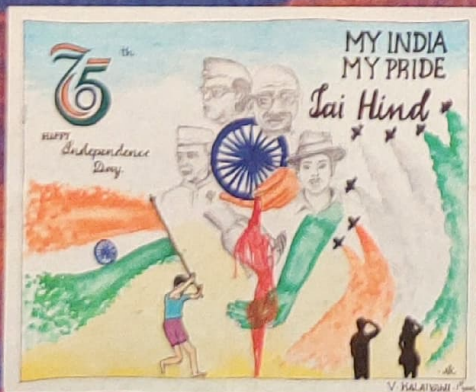 75th
HAPPY
Independence
Day.
MY INDIA
MY PRIDE
Jai Hind